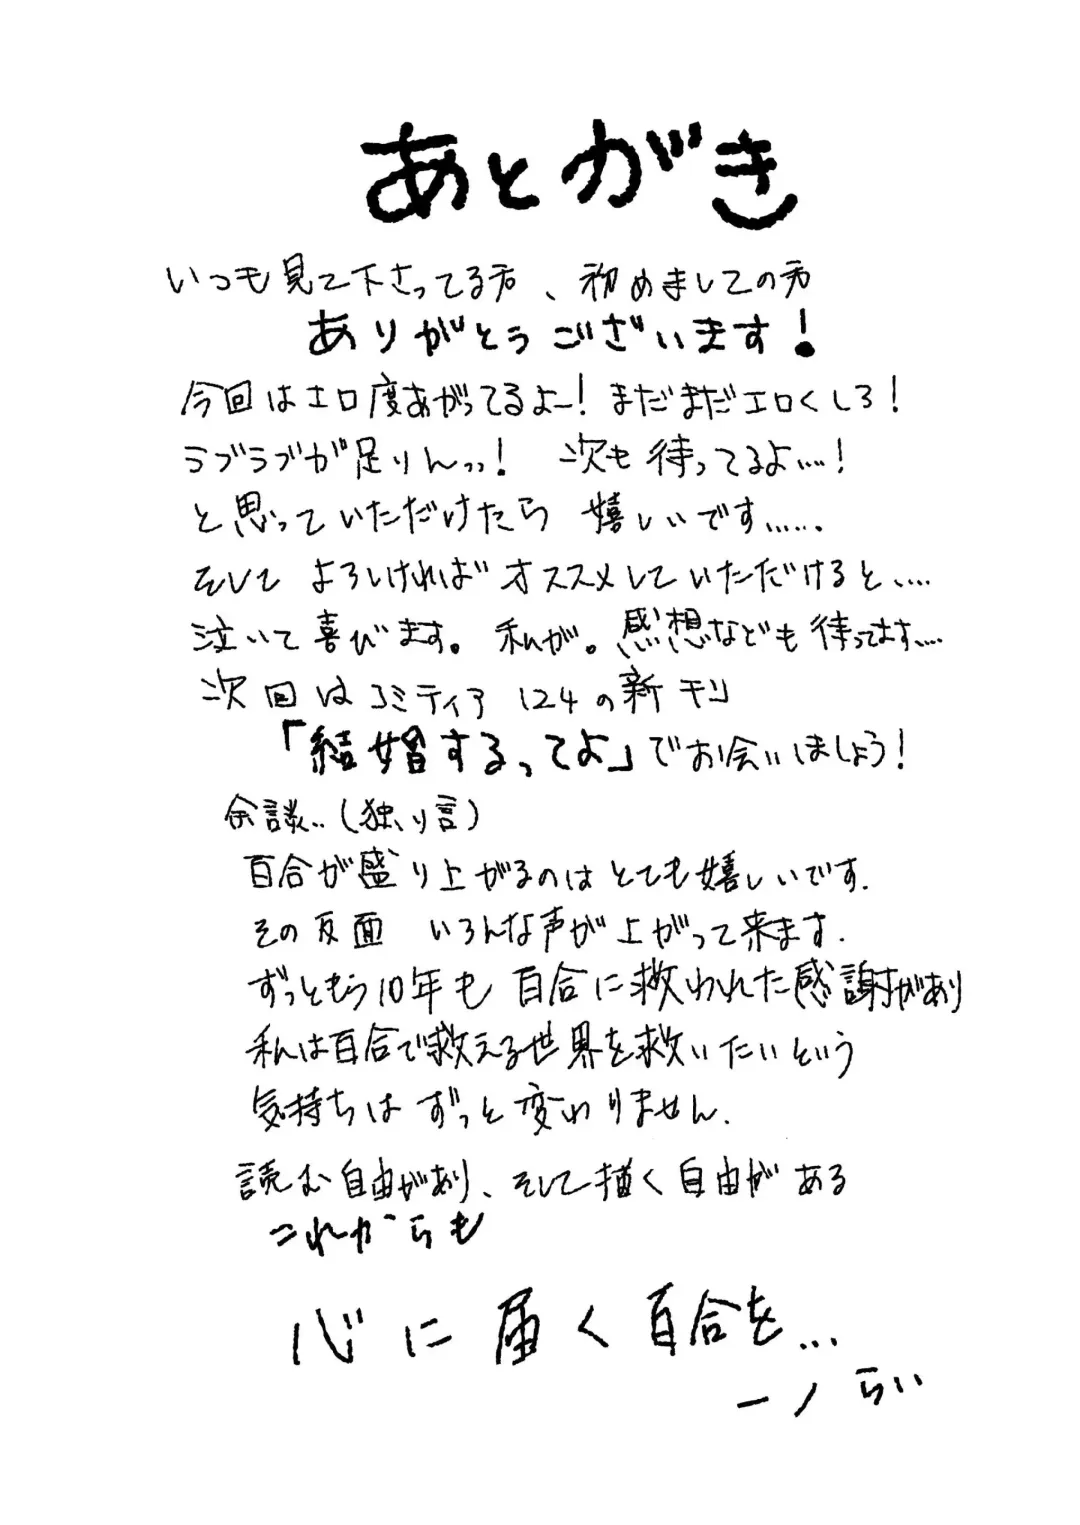 あとがき
いつも見て下さってる方、初めましての方
ありがとうございます！
今回はエロ度あがってるよー！まだまだエロくしろ！
ラブラブが足りんッッ！ 次も待ってるよ…！
と思っていただけたら 嬉しいです……
そして よろしければ オススメしていただけると、…
泣いて喜びます。私が。感想なども待ってます…
次回はコミティア124の新刊
「結婚するってよ」でお会いしましょう！
余談..(独り言)
百合が盛り上がるのはとても嬉しいです.
その反面 いろんな声が上がって来ます.
ずっともう10年も 百合に救われた感謝があり
私は百合で救える世界を救いたいという
気持ちは ずっと変わりません.
読む自由があり、そして描く自由がある
これからも
心に届く百合を...
一ノ らい